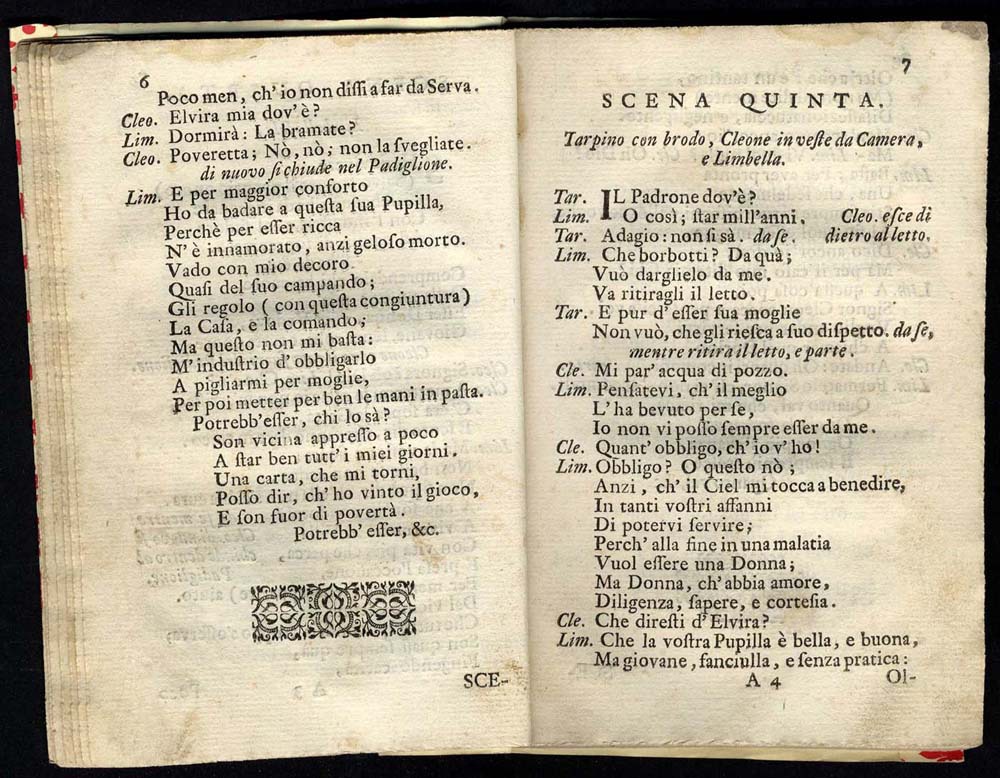 6
Poco men, ch' io non dissi a far da Serva.
Cleo. Elvira mia dov' è?
Lim. Dormirà: La bramate?
Cleo. Poveretta; Nò, nò; non la svegliate.
di nuovo si chiude nel Padiglione.
Lim. E per maggior conforto
Ho da badare a questa sua Pupilla,
Perchè per esser ricca
N' è innamorato, anzi geloso morto.
Vado con mio decoro
Quasi del suo campando;
Gli regolo (con questa congiuntura)
La Casa, e la comando;
Ma questo non mi basta:
M' industrio d' obbligarlo
A pigliarmi per moglie,
Per poi metter per ben le mani in pasta.
Potrebb' esser, chi lo sà?
Son vicina appresso a poco
A star ben tutt' i miei giorni.
Una carta, che mi torni,
Posso dir, ch' ho vinto il gioco,
E son fuor di povertà.
Potrebb' esser, &c.
SCE-
7
SCENA QUINTA.
Tarpino con brodo, Cleone in veste da Camera,
e Limbella.
Tar. IL Padrone dov'è?
Lim. O così; star mill'anni. Cleo. esce di
Tar. Adagio: non si sà. da se. dietro al letto.
Lim. Che borbotti? Da quà;
Vuò darglielo da me.
Va ritiragli il letto.
Tar. E pur d' esser sua moglie
Non vuò, che gli riesca a suo dispetto. da se,
mentre ritira il letto, e parte.
Cle. Mi par' acqua di pozzo.
Lim. Pensatevi, ch' il meglio
L' ha bevuto per se,
Io non vi posso sempre esser da me.
Cle. Quant' obbligo, ch' io v' ho!
Lim. Obbligo? O questo nò;
Anzi, ch' il Ciel mi tocca a benedire,
In tanti vostri affanni
Di potervi servire;
Perch' alla fine in una malatia
Vuol essere una Donna;
Ma Donna, ch' abbia amore,
Diligenza, sapere, e cortesia.
Cle. Che diresti d' Elvira?
Lim. Che la vostra Pupilla è bella, e buona,
Ma giovane, fanciulla, e senza pratica:
A 4 Ol-